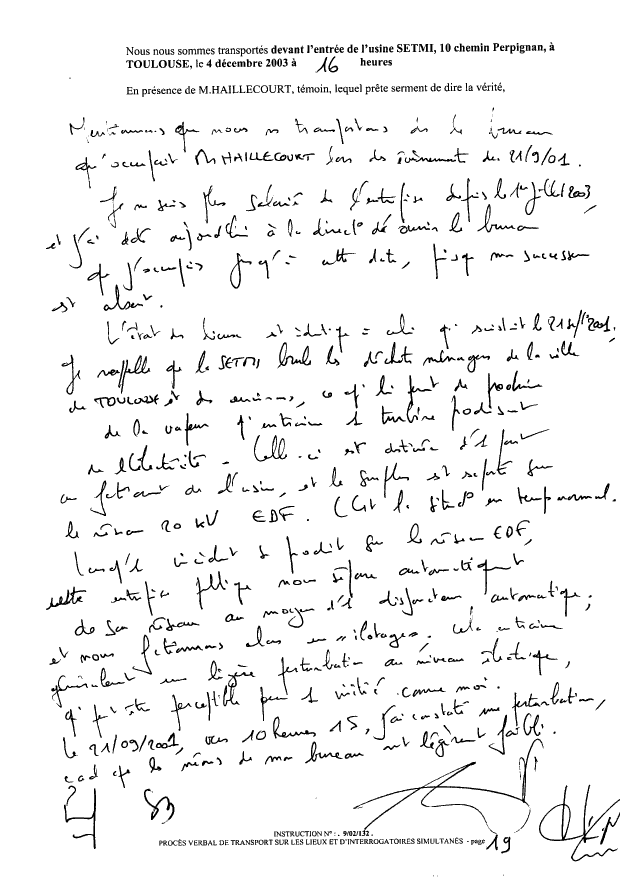 Nous nous sommes transportés devant l'entrée de l'usine SETMI, 10 chemin Perpignan, à
TOULOUSE, le 4 décembre 2003 à 16 heures
En présence de M.HAILLECOURT, témoin, lequel prête serment de dire la vérité,
Mentionnons que nous ns transportons ds le bureau
qu'occupait M HAILLECOURT lors de l'évènement du 21/9/01.
Je ne suis plus salarié de l'entreprise depuis le 1er juillet 2003,
et j'ai dde aujourd'hui à la direct° de ouvrir le bureau
que j'occupais jusqu'à cette date, puisque mon successeur
est absent.
L'état des lieux est identique à celui qui existait le 21 2001.
Je rappelle que la SETMI brule les déchets ménagers de la ville
de TOULOUSE et des environs, ce qui lui permet de produire
de la vapeur qui entraine 1 turbine produisant
de l'électricité - Celle-ci est destinée d'1 part
au fctionnt de l'usine, et le surplus est exporté sur
le réseau 20 kV EDF. (C'est la situat° en temps normal.
Lorsqu'1 incident se produit sur le réseau EDF,
cette entreprise publique nous sépare automatiqut
de son réseau au moyen d'1 disjoncteur automatique,
et nous fctionnons alors en "ilotage". Cela entraine
généralement une légère perturbation au niveau électrique,
qui peut être perceptible pour 1 initié comme moi.
Le 21/09/2001, vers 10 heures 15, j'ai constaté une perturbation,
cad que les néons de mon bureau ont légèrement faibli.
INSTRUCTION N° : . 9/02/132 .
PROCÈS VERBAL DE TRANSPORT SUR LES LIEUX ET D'INTERROGATOIRES SIMULTANÉS - page 19